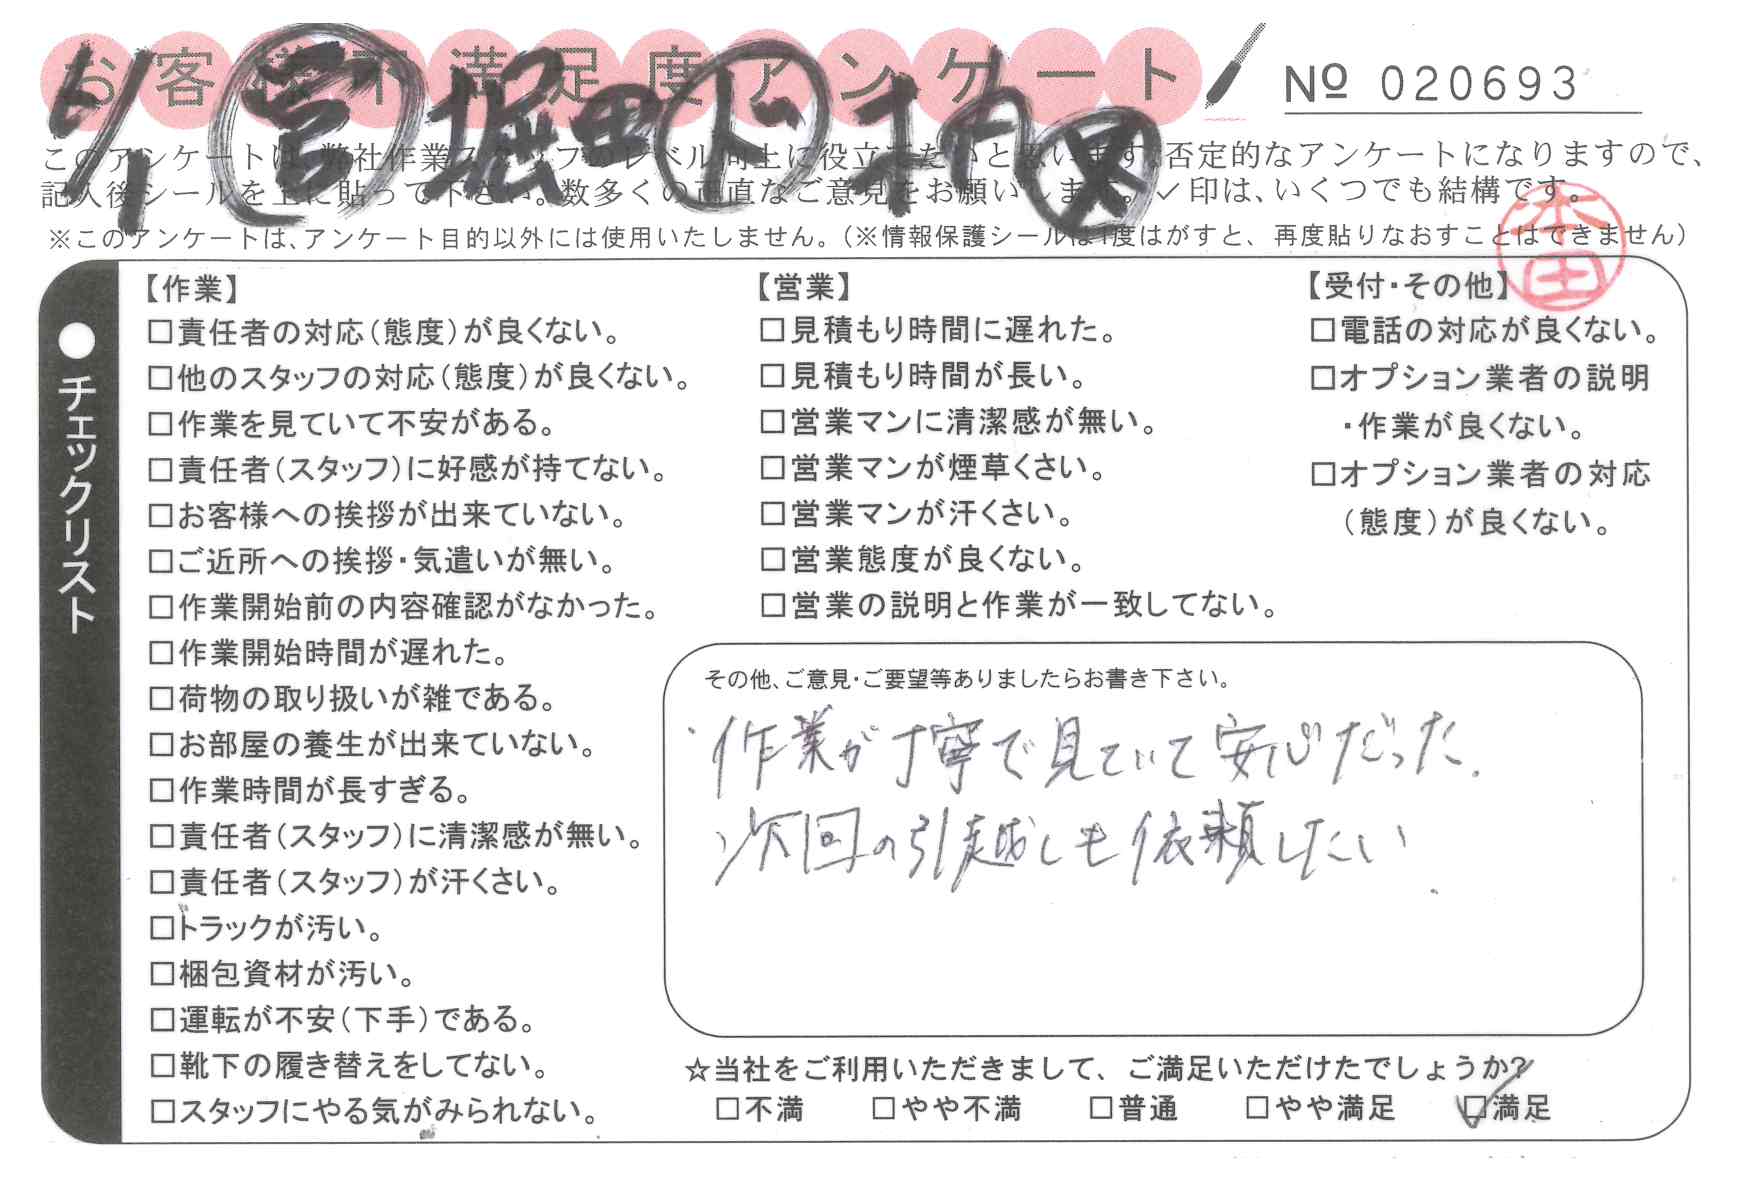 お客様不満足度アンケート
№ 020693
営 堀田
このアンケートは、弊社作業スタッフのレベル向上に役立てたいと思います。否定的なアンケートになりますので、
記入後シールを上に貼って下さい。数多くの正直なご意見をお願いします。✓印は、いくつでも結構です。
※このアンケートは、アンケート目的以外には使用いたしません。(※情報保護シールは1度はがすと、再度貼りなおすことはできません)
本田
●チェックリスト
【作業】
□責任者の対応(態度)が良くない。
□他のスタッフの対応(態度)が良くない。
□作業を見ていて不安がある。
□責任者(スタッフ)に好感が持てない。
□お客様への挨拶が出来ていない。
□ご近所への挨拶・気遣いが無い。
□作業開始前の内容確認がなかった。
□作業開始時間が遅れた。
□荷物の取り扱いが雑である。
□お部屋の養生が出来ていない。
□作業時間が長すぎる。
□責任者(スタッフ)に清潔感が無い。
□責任者(スタッフ)が汗くさい。
□トラックが汚い。
□梱包資材が汚い。
□運転が不安(下手)である。
□靴下の履き替えをしてない。
□スタッフにやる気がみられない。
【営業】
□見積もり時間に遅れた。
□見積もり時間が長い。
□営業マンに清潔感が無い。
□営業マンが煙草くさい。
□営業マンが汗くさい。
□営業態度が良くない。
□営業の説明と作業が一致してない。
【受付・その他】
□電話の対応が良くない。
□オプション業者の説明
・作業が良くない。
□オプション業者の対応
(態度)が良くない。
その他、ご意見・ご要望等ありましたらお書き下さい。
・作業が丁寧で見ていて安心だった.
次回の引越しも依頼したい.
☆当社をご利用いただきまして、ご満足いただけたでしょうか?
□不満 □やや不満 □普通 □やや満足 ☑満足